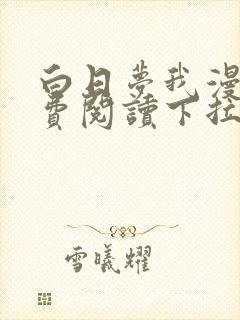 白日夢我漫
費閱讀下拉
雪曦耀